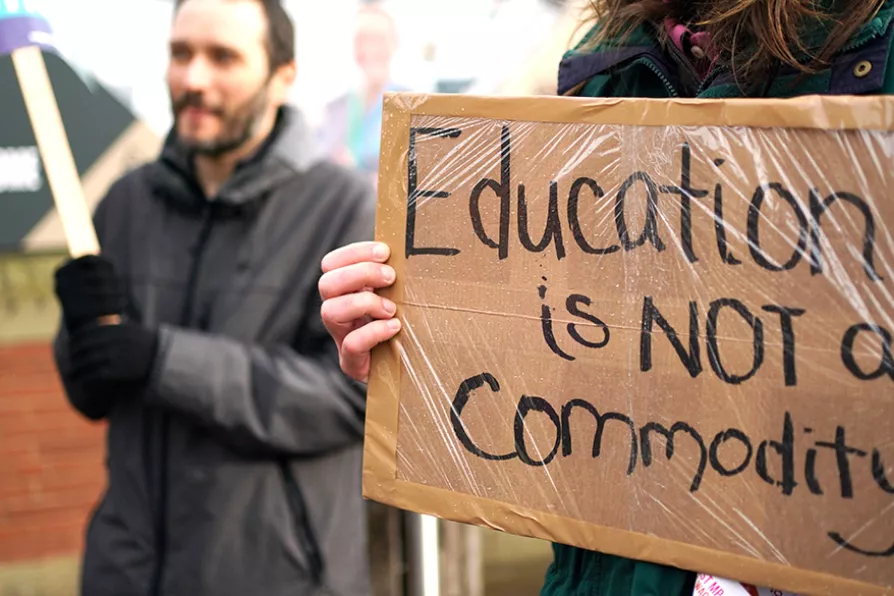 Education
is NOT a
Commodity